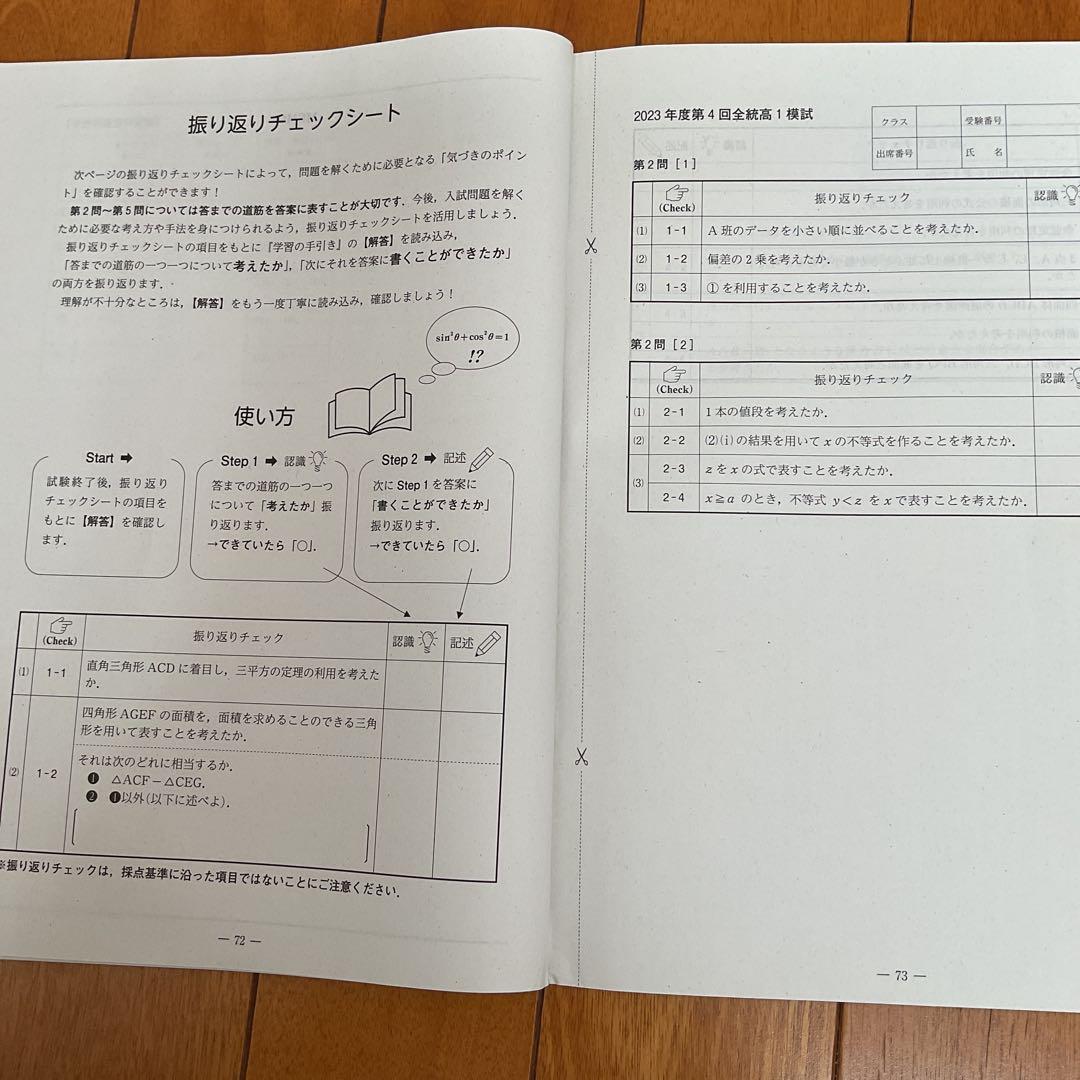 振り返りチェックシート
次ページの振り返りチェックシートによって，問題を解くために必要となる「気づきのポイン
ト」を確認することができます！
第２問～第５問については答までの道筋を答案に表すことが大切です．今後，入試問題を解く
ために必要な考え方や手法を身につけられるよう，振り返りチェックシートを活用しましょう．
振り返りチェックシートの項目をもとに『学習の手引き』の【解答】を読み込み，
「答までの道筋の一つ一つについて考えたか」，「次にそれを答案に書くことができたか」
の両方を振り返ります．
理解が不十分なところは，【解答】をもう一度丁寧に読み込み，確認しましょう！
sin²θ+cos²θ=1
!?
使い方
Start ➡
試験終了後，振り返り
チェックシートの項目を
もとに【解答】を確認し
ます．
Step 1 ➡ 認識
答までの道筋の一つ一つ
について「考えたか」振
り返ります．
→できていたら「○」．
Step 2 ➡ 記述
次に Step 1 を答案に
「書くことができたか」
振り返ります．
→できていたら「○」．
(Check) 振り返りチェック 認識 記述
(1) 1-1 直角三角形 ACD に着目し，三平方の定理の利用を考えた
か．
(2) 1-2 四角形 AGEF の面積を，面積を求めることのできる三角
形を用いて表すことを考えたか．
それは次のどれに相当するか．
❶ △ACF－△CEG．
❷ ❶以外（以下に述べよ）．
※振り返りチェックは，採点基準に沿った項目ではないことにご注意ください．
— 72 —
2023 年度第４回全統高１模試
クラス 受験番号
出席番号 氏 名
第２問［１］
(Check) 振り返りチェック 認識
(1) 1-1 A 班のデータを小さい順に並べることを考えたか．
(2) 1-2 偏差の２乗を考えたか．
(3) 1-3 ①を利用することを考えたか．
第２問［２］
(Check) 振り返りチェック 認識
(1) 2-1 １本の値段を考えたか．
(2) 2-2 (2)(i)の結果を用いて x の不等式を作ることを考えたか．
(3) 2-3 z を x の式で表すことを考えたか．
2-4 x≧a のとき，不等式 y<z を x で表すことを考えたか．
— 73 —